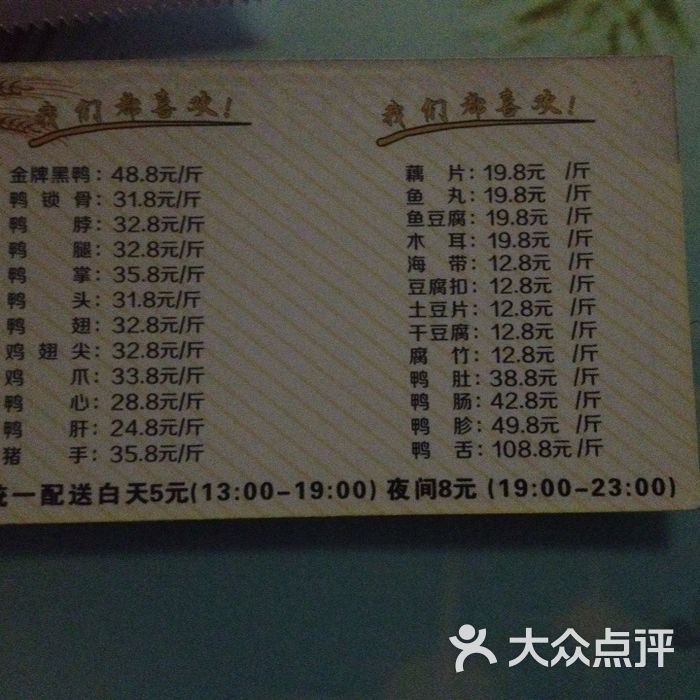 我们都喜欢!
金牌黑鸭：48.8元/斤
鸭锁骨：31.8元/斤
鸭脖：32.8元/斤
鸭腿：32.8元/斤
鸭掌：35.8元/斤
鸭头：31.8元/斤
鸭翅：32.8元/斤
鸡翅尖：32.8元/斤
鸡爪：33.8元/斤
鸭心：28.8元/斤
鸭肝：24.8元/斤
猪手：35.8元/斤
我们都喜欢!
藕片：19.8元 /斤
鱼丸：19.8元 /斤
鱼豆腐：19.8元 /斤
木耳：19.8元 /斤
海带：12.8元 /斤
豆腐扣：12.8元 /斤
土豆片：12.8元 /斤
干豆腐：12.8元 /斤
腐竹：12.8元 /斤
鸭肚：38.8元 /斤
鸭肠：42.8元 /斤
鸭胗：49.8元 /斤
鸭舌：108.8元 /斤
统一配送白天5元(13:00-19:00) 夜间8元 (19:00-23:00)
大众点评